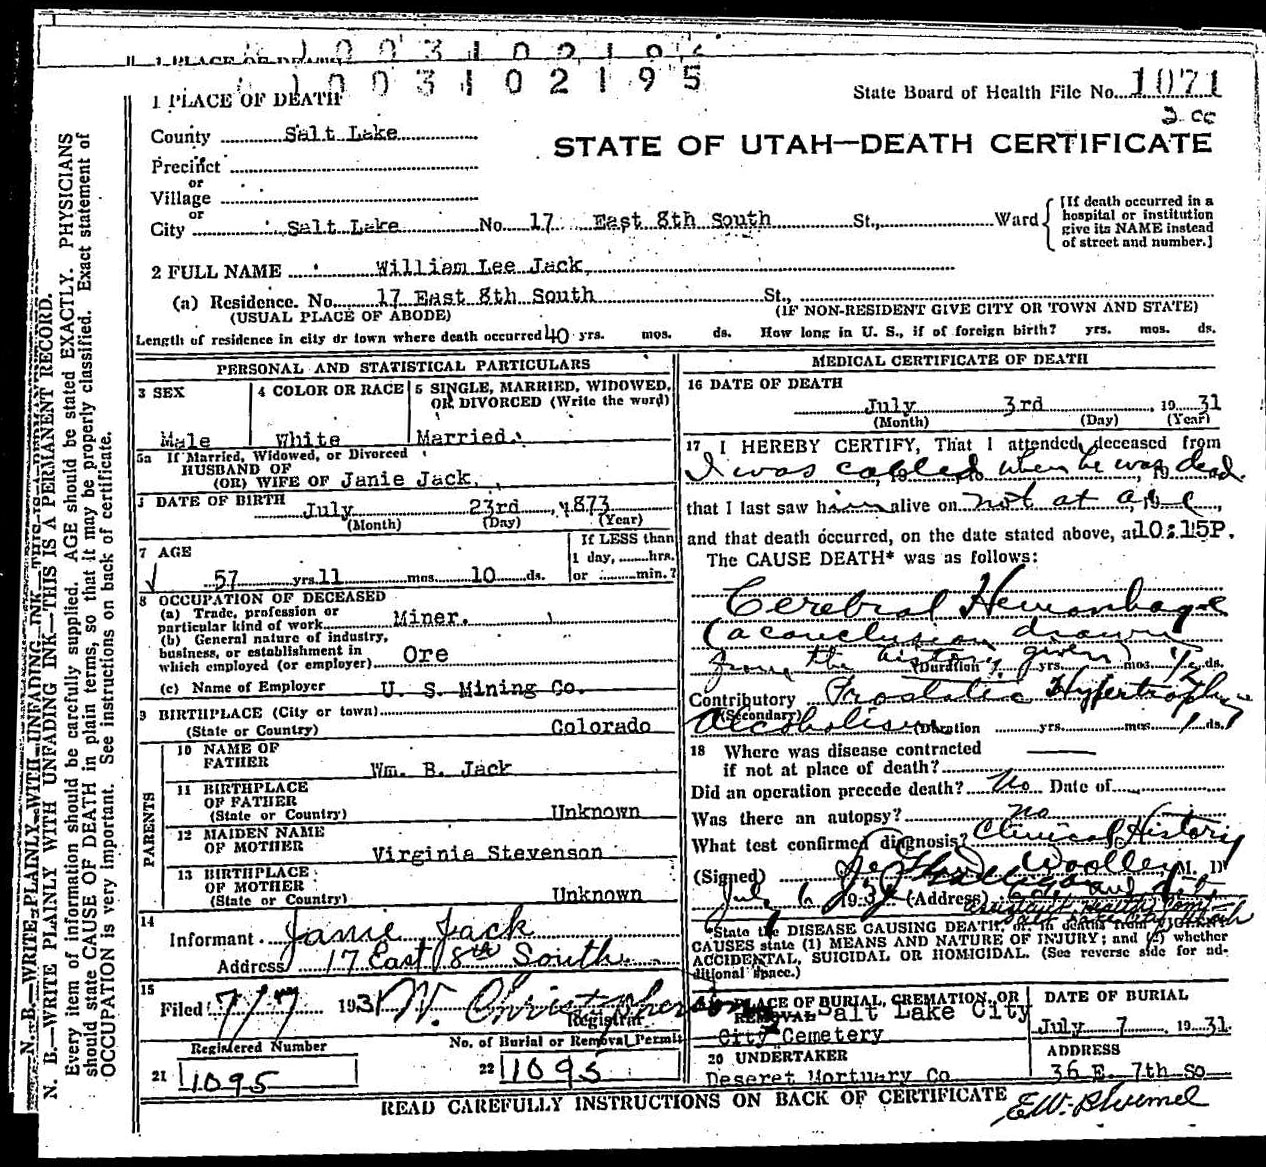 1003102195
1 PLACE OF DEATH
State Board of Health File No. 1071
2 cc
County Salt Lake
STATE OF UTAH—DEATH CERTIFICATE
Precinct
or
Village
or
City Salt Lake No. 17 East 8th South St., Ward
[If death occurred in a hospital or institution give its NAME instead of street and number.]
2 FULL NAME William Lee Jack
(a) Residence. No. 17 East 8th South St.,
(USUAL PLACE OF ABODE) (IF NON-RESIDENT GIVE CITY OR TOWN AND STATE)
Length of residence in city or town where death occurred 40 yrs. mos. ds. How long in U. S., if of foreign birth? yrs. mos. ds.
PERSONAL AND STATISTICAL PARTICULARS
3 SEX 4 COLOR OR RACE 5 SINGLE, MARRIED, WIDOWED, OR DIVORCED (Write the word)
Male White Married
5a If Married, Widowed, or Divorced
HUSBAND OF
(OR) WIFE OF Janie Jack
DATE OF BIRTH July 23rd, 1873
(Month) (Day) (Year)
7 AGE If LESS than 1 day, hrs. or min.?
57 yrs. 11 mos 10 ds.
8 OCCUPATION OF DECEASED
(a) Trade, profession or
particular kind of work Miner.
(b) General nature of industry,
business, or establishment in
which employed (or employer) Ore
(c) Name of Employer U. S. Mining Co.
9 BIRTHPLACE (City or town)
(State or Country) Colorado
PARENTS
10 NAME OF
FATHER Wm. B. Jack
11 BIRTHPLACE
OF FATHER
(State or Country) Unknown
12 MAIDEN NAME
OF MOTHER Virginia Stevenson
13 BIRTHPLACE
OF MOTHER
(State or Country) Unknown
14
Informant Janie Jack
Address 17 East 8th South
15
Filed 7/7 1931 W. Christopherson
Registrar
Registered Number No. of Burial or Removal Permit
21 1095 22 1095
MEDICAL CERTIFICATE OF DEATH
16 DATE OF DEATH
July 3rd, 1931
(Month) (Day) (Year)
17 I HEREBY CERTIFY, That I attended deceased from
I was called when he was dead
that I last saw him alive on not at all, 19
and that death occurred, on the date stated above, at 10:15P.
The CAUSE DEATH* was as follows:
Cerebral Hemorrhage
(a conclusion drawn
from the history given)
(Duration) yrs. mos. 1/2 ds.
Contributory Prostatic Hypertrophy
(Secondary)
Alcoholism (Duration yrs. mos. ds.)
18 Where was disease contracted
if not at place of death?
Did an operation precede death? No Date of
Was there an autopsy? no
What test confirmed diagnosis? Clinical History
(Signed) Woolley M. D.
July 6 1931 (Address)
Assistant Health Com
Salt Lake City Utah
*State the DISEASE CAUSING DEATH, or, in deaths from VIOLENT
CAUSES state (1) MEANS AND NATURE OF INJURY; and (2) whether
ACCIDENTAL, SUICIDAL OR HOMICIDAL. (See reverse side for ad-
ditional space.)
PLACE OF BURIAL, CREMATION, OR REMOVAL Salt Lake City
City Cemetery
DATE OF BURIAL
July 7, 1931.
20 UNDERTAKER ADDRESS
Deseret Mortuary Co 36 E. 7th So
READ CAREFULLY INSTRUCTIONS ON BACK OF CERTIFICATE
N. B.—WRITE PLAINLY WITH UNFADING INK—THIS IS A PERMANENT RECORD.
Every item of information should be carefully supplied. AGE should be stated EXACTLY. PHYSICIANS
should state CAUSE OF DEATH in plain terms, so that it may be properly classified. Exact statement of
OCCUPATION is very important. See instructions on back of certificate.